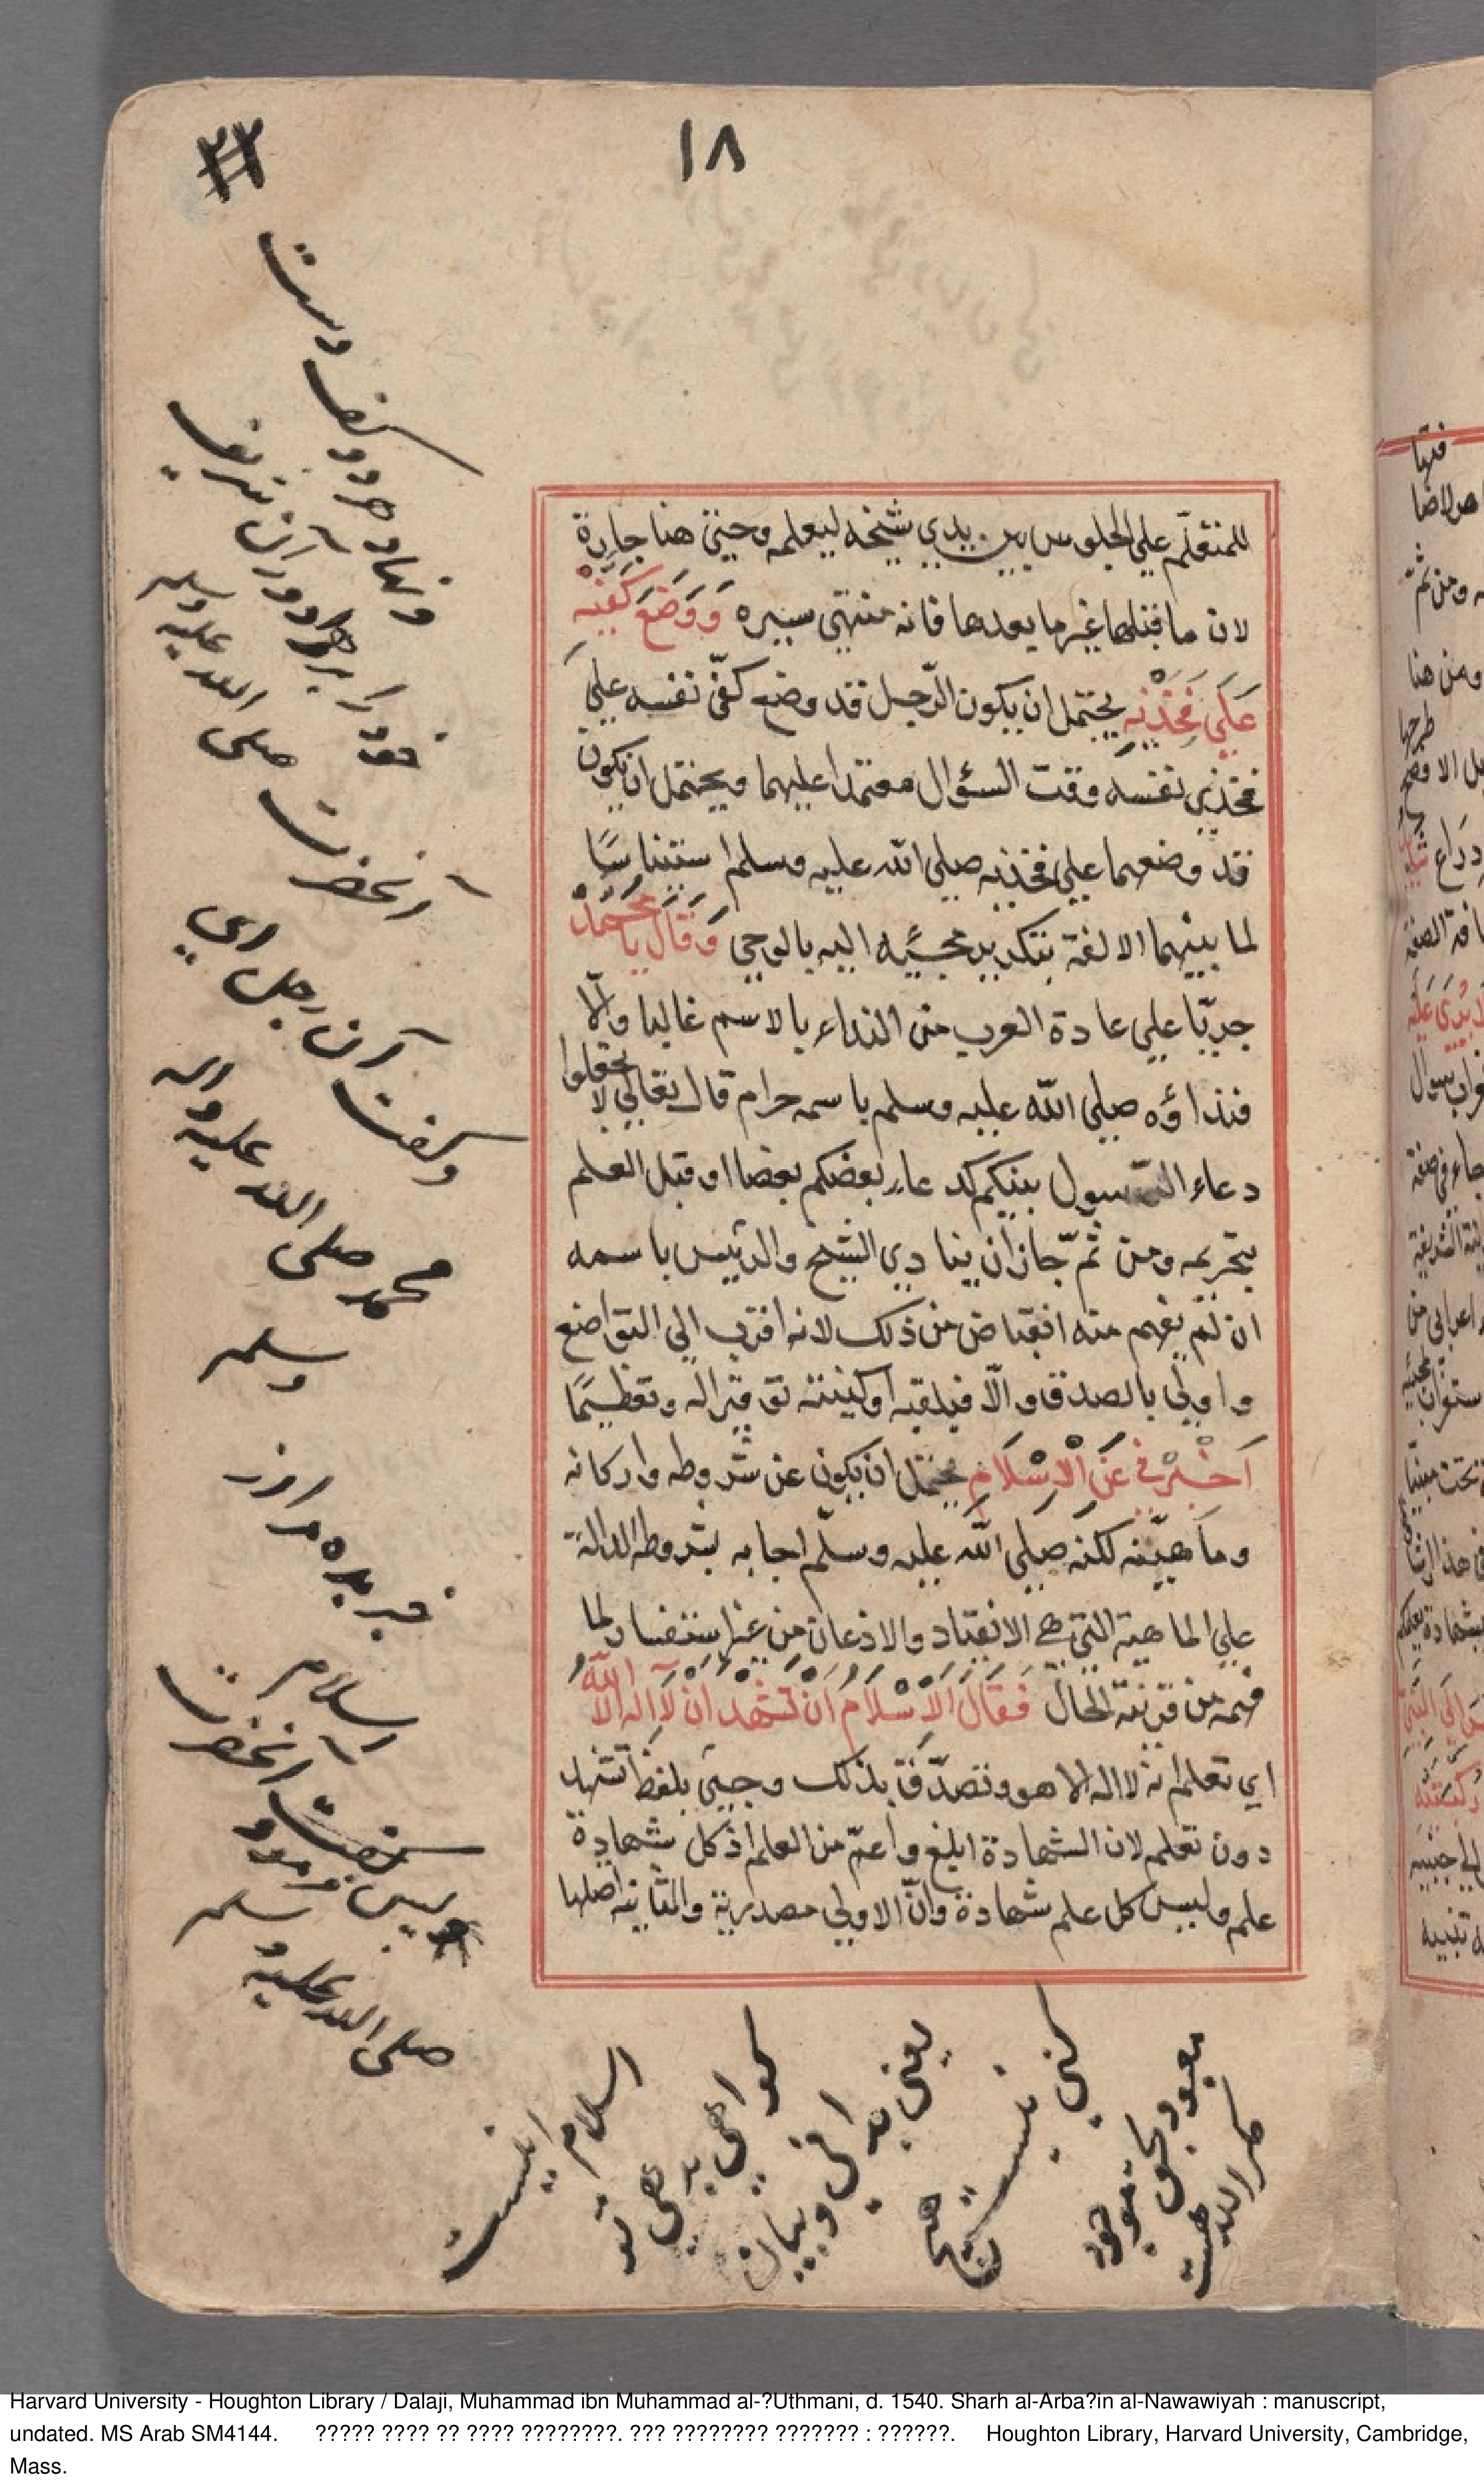 ١٨
٢٢
للمتعلم علي الجلوس بين يدي شيخه ليعلمه وحيئ هنا جارة
لان ما قبلها غير ما بعدها فانه منتهي سيره وَوَضَعَ كَفَّيْهِ
عَلَي فَخِذَيْهِ يحتمل ان يكون الرّجل قد وضع كفّي نفسه علي
فخذي نفسه وقت السؤال معتمدا عليهما ويحتمل ان يكون
قد وضعهما علي فخذيه صلي الله عليه وسلم استيناسًا
لما بينهما الالفة بتكرير مجيئه اليه بالوحي وَقَالَ يَا مُحَمَّدُ
جريّا علي عادة العرب من النداء بالاسم غالبا والّا
فنداؤه صلي الله عليه وسلم باسمه حرام قال تعالي لا تجعلوا
دعاء الرّسول بينكم كدعاء بعضكم بعضا او قبل العلم
بتحريمه ومن ثمّ جاز ان ينادي الشيخ والرئيس باسمه
ان لم يفهم منه انقباض من ذلك لانه اقرب الي التواضع
واولي بالصدق والّا فبلقبه او كنيته توقيرا له وتعظيمًا
اَخْبِرْنِي عَنِ الْاِسْلَامِ يحتمل ان يكون عن شروطه واركانه
وماهيّته لكنه صلي الله عليه وسلّم اجابه بشروطه الدالة
علي الماهية التي هي الانقياد والاذعان من غير استفسار لما
فهمه من قرينة الحال فَقَالَ الْاِسْلَامُ اَنْ تَشْهَدَ اَنْ لَا اِلٰهَ اِلَّا اللّٰهُ
اي تعلم انه لا اله الا هو وتصدّق بذلك وجيئ بلفظ تشهد
دون تعلم لان الشهادة ابلغ واعمّ من العلم اذ كل شهادة
علم وليس كل علم شهادة وانّ الاولي مصدرية والثانية اصلها
ونهاد هر دو كف دست
خود را بر هر دو ران شريف
آنحضرت صلى الله عليه وسلم
وگفت آن رجل اي
محمد صلى الله عليه واله
وسلم
خبر بده مرا از
اسلام
پس گفت آنحضرت
صلى الله عليه وسلم
اسلام اينست
گواهي بدهي تو
يعني بداني وبيان
كني نيست هيچ
معبود بحق موجود
مگر الله هست
Harvard University - Houghton Library / Dalaji, Muhammad ibn Muhammad al-?Uthmani, d. 1540. Sharh al-Arba?in al-Nawawiyah : manuscript,
undated. MS Arab SM4144. ????? ???? ?? ???? ????????. ??? ???????? ??????? : ??????. Houghton Library, Harvard University, Cambridge,
Mass.